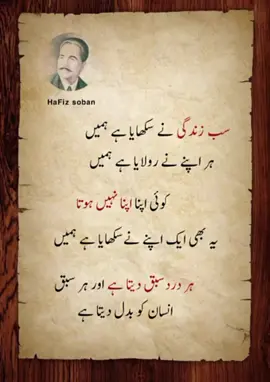 HaFiz soban
سب زندگی نے سکھایا ہے ہمیں
ہر اپنے نے رولایا ہے ہمیں
کوئی اپنا اپنا نہیں ہوتا
یہ بھی ایک اپنے نے سکھایا ہے ہمیں
ہر درد سبق دیتا ہے اور ہر سبق
انسان کو بدل دیتا ہے